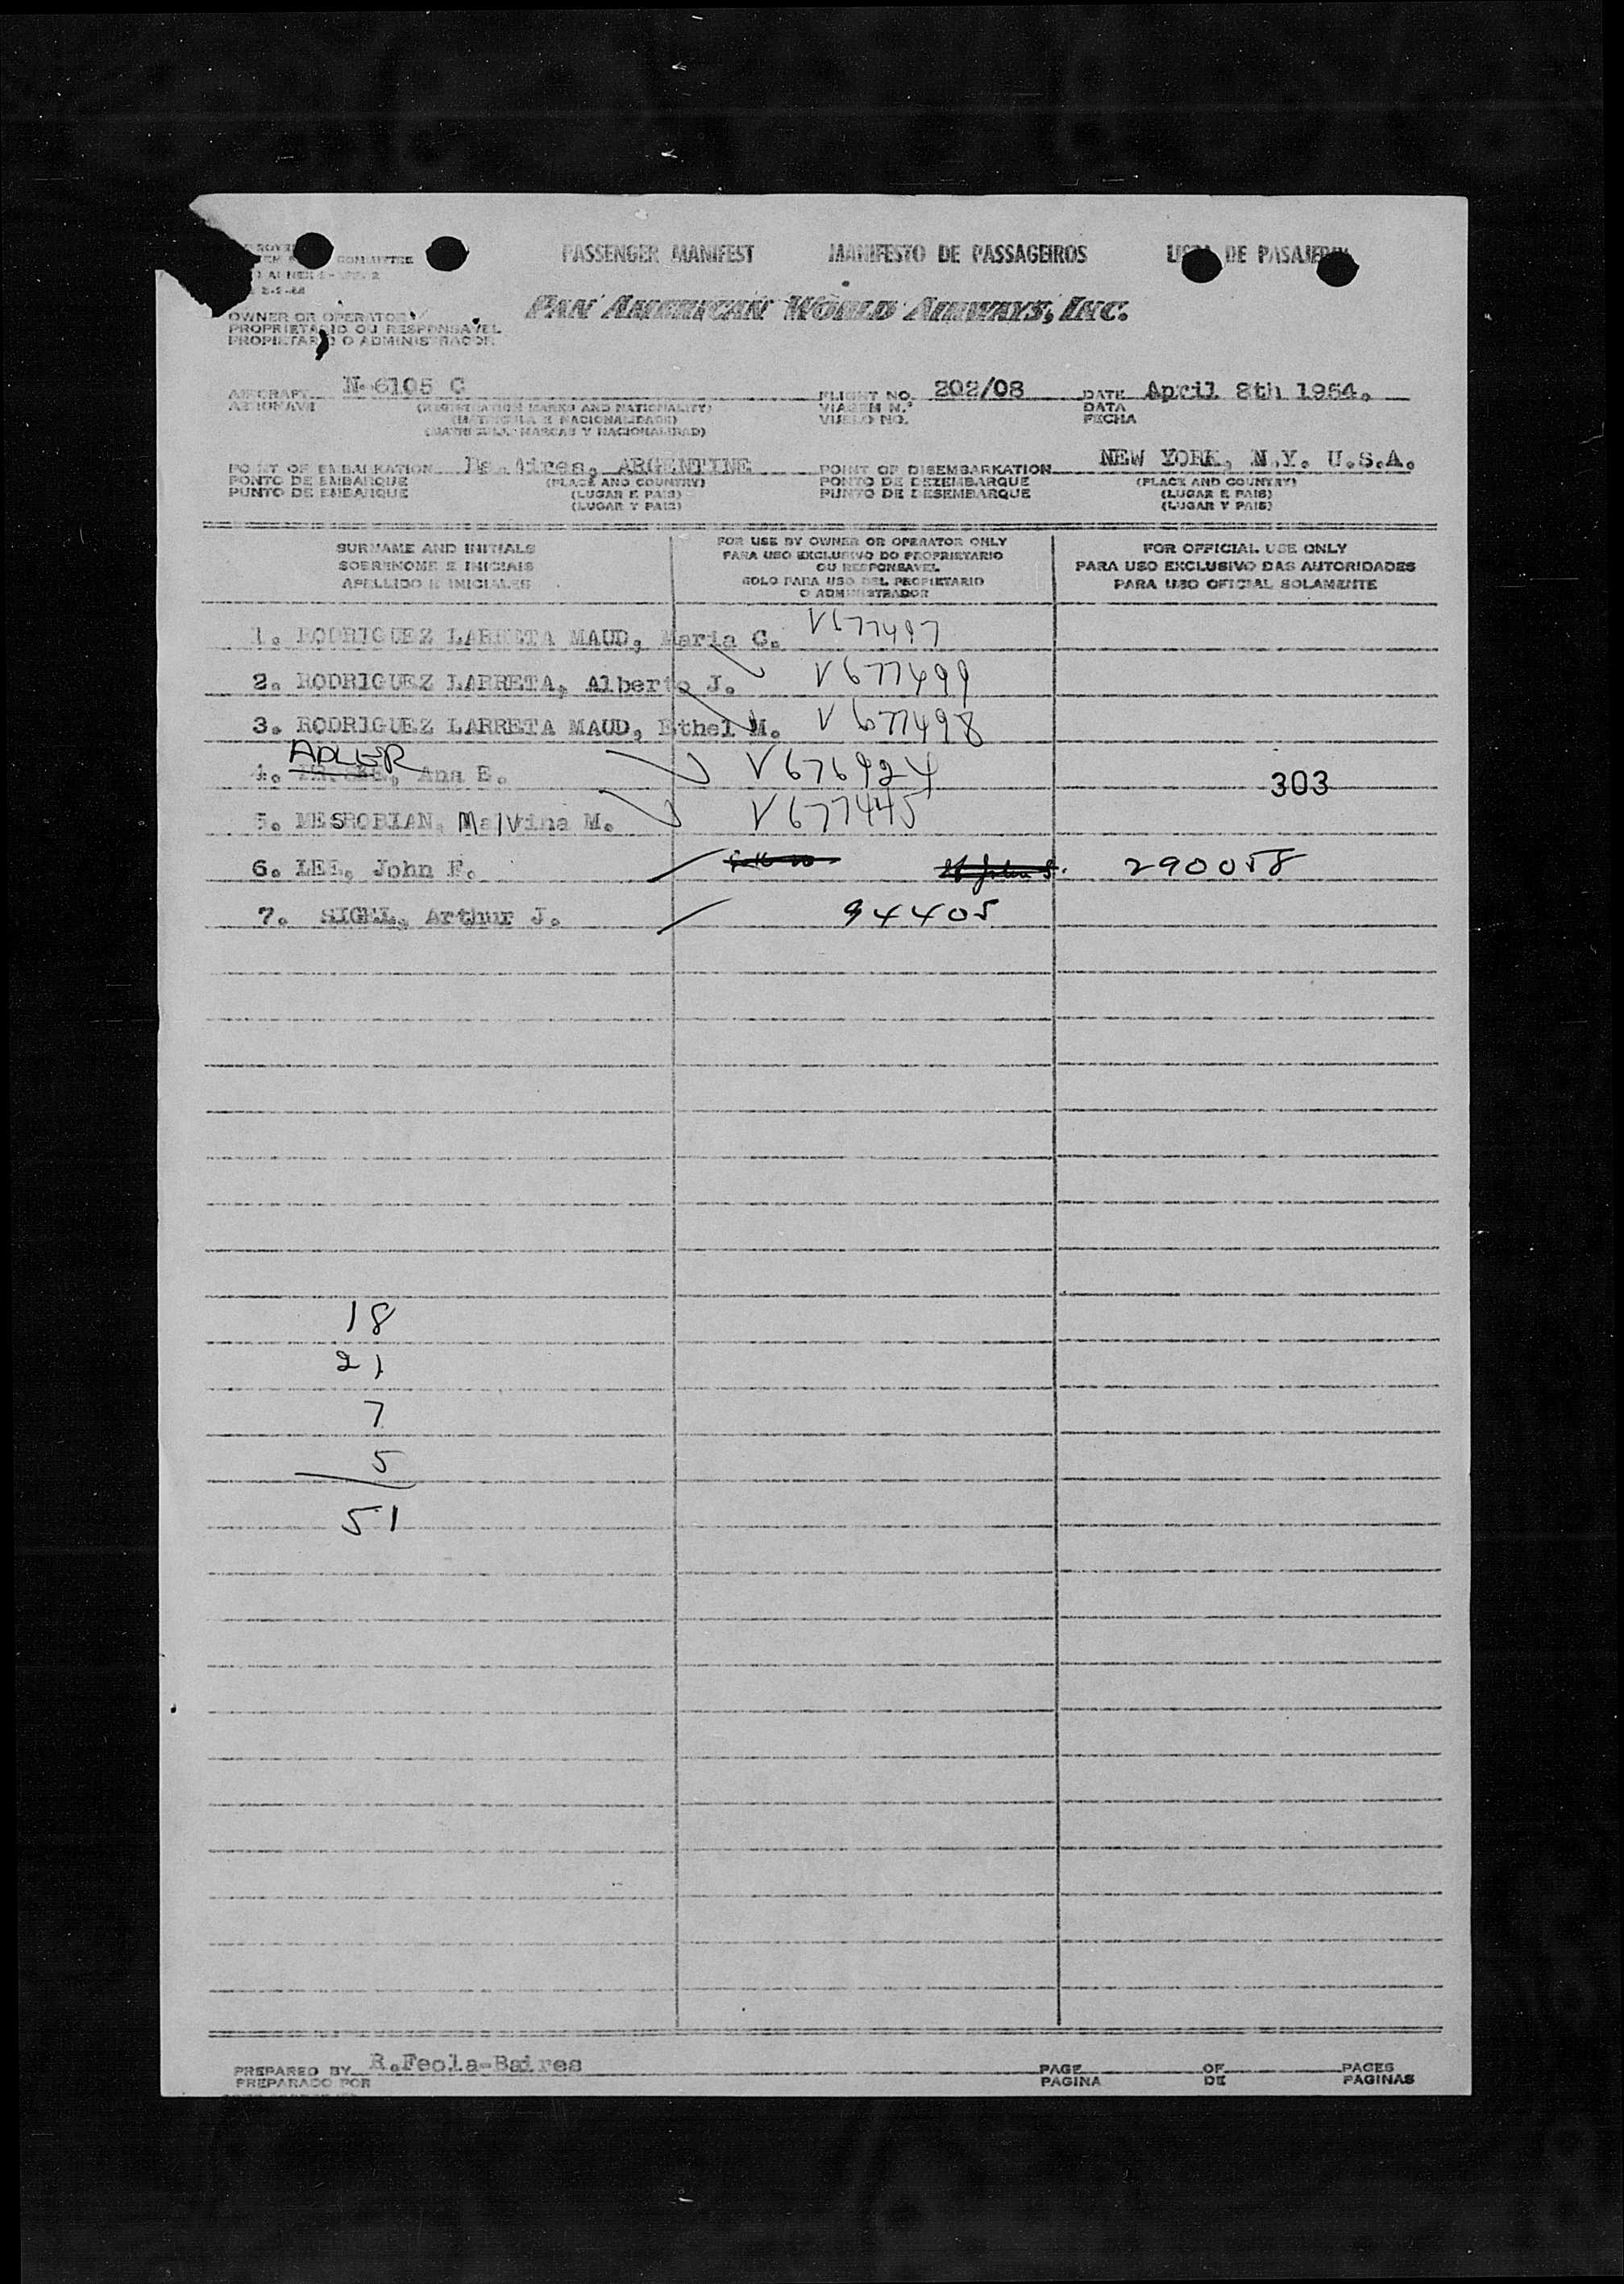 PASSENGER MANIFEST MANIFESTO DE PASSAGEIROS LISTA DE PASAJEROS
COMMITTEE
PAN AMERICAN WORLD AIRWAYS, INC.
OWNER OR OPERATOR
PROPRIETARIO OU RESPONSAVEL
PROPIETARIO O ADMINISTRADOR
AIRCRAFT N-6105 C FLIGHT NO. 202/08 DATE April 8th 1954.
AERONAVE (REGISTRATION MARKS AND NATIONALITY) VIAGEM N.º DATA
(MATRICULA E NACIONALIDADE) VUELO NO. FECHA
(MATRICULA, MARCAS Y NACIONALIDAD)
POINT OF EMBARKATION Bs. Aires, ARGENTINE POINT OF DISEMBARKATION NEW YORK, N.Y. U.S.A.
PONTO DE EMBARQUE (PLACE AND COUNTRY) PONTO DE DEZEMBARQUE (PLACE AND COUNTRY)
PUNTO DE EMBARQUE (LUGAR E PAIS) PUNTO DE DESEMBARQUE (LUGAR E PAIS)
(LUGAR Y PAIS) (LUGAR Y PAIS)
SURNAME AND INITIALS
SOBRENOME E INICIAIS
APELLIDO E INICIALES
FOR USE BY OWNER OR OPERATOR ONLY
PARA USO EXCLUSIVO DO PROPRIETARIO
OU RESPONSAVEL
SOLO PARA USO DEL PROPIETARIO
O ADMINISTRADOR
FOR OFFICIAL USE ONLY
PARA USO EXCLUSIVO DAS AUTORIDADES
PARA USO OFICIAL SOLAMENTE
1. RODRIGUEZ LARRETA MAUD, Maria C. V677497
2. RODRIGUEZ LARRETA, Alberto J. V677499
3. RODRIGUEZ LARRETA MAUD, Ethel M. V677498
ADLER
4. Ana E. V676924 303
5. MESROBIAN, Malvina M. V677445
6. LEE, John F. 290058
7. SIGEL, Arthur J. 94405
18
21
7
5
51
PREPARED BY R.Feola-Baires PAGE OF PAGES
PREPARADO POR PAGINA DE PAGINAS